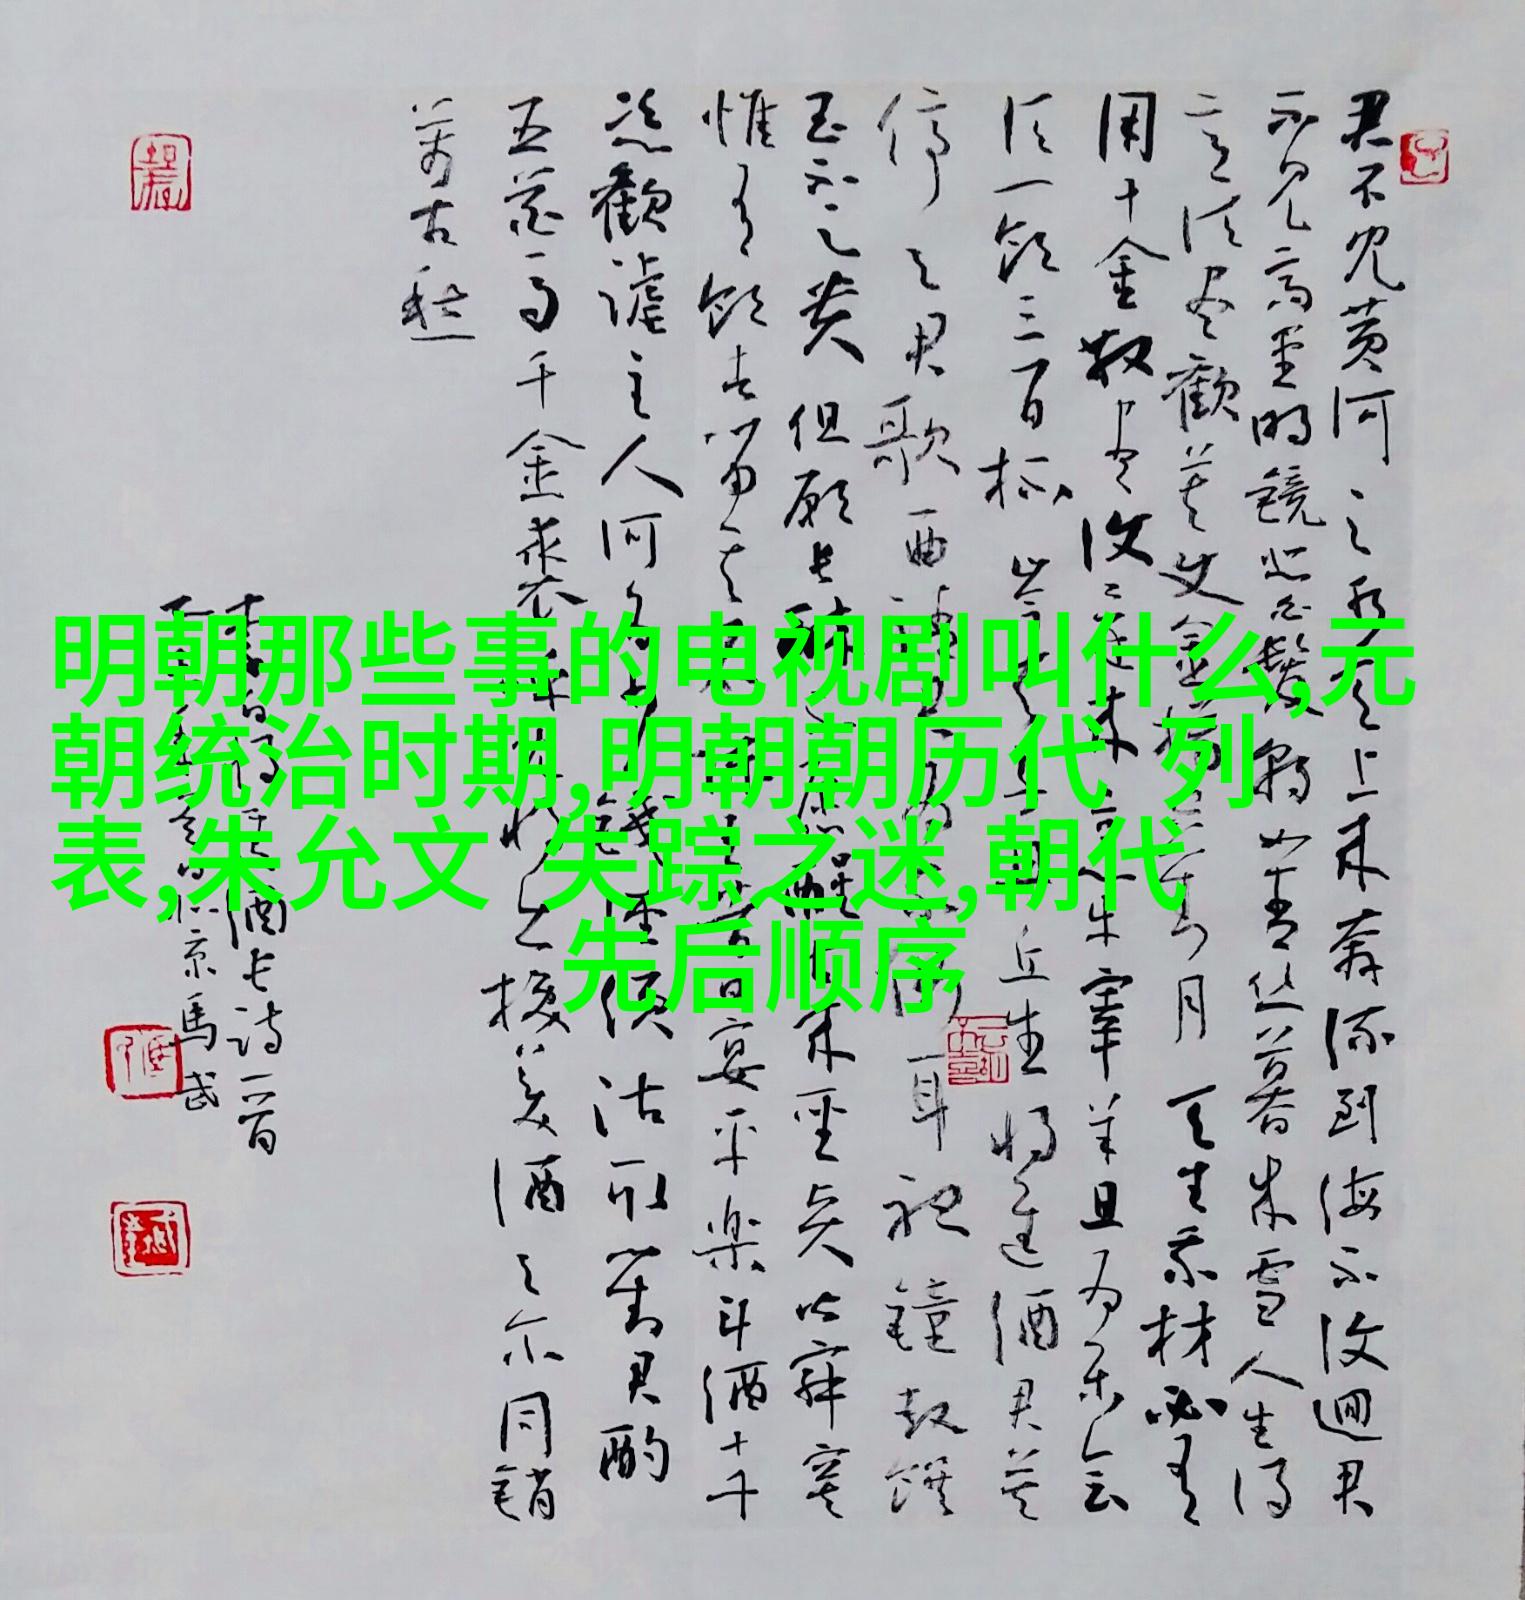 明朝那些事的电视剧叫什么,元
朝统治时期,明朝朝历代 列
表,朱允文 失踪之迷,朝代
先后顺序
君不见黄河之水天上来奔流到海不复迴君
不见高堂明镜悲白髮朝如青丝暮成雪人生得
意须尽歡莫使金樽空对月天生我材必有
用千金散尽復还来烹牛宰羊且为乐会
须一饮三百杯岑夫子丹丘生将进酒君莫
停与君歌一曲请君为我耳聽鐘鼓馔
玉不足贵但愿长醉不愿醒古来圣贤皆寂寞
惟有饮者留其名陈王昔日宴平樂斗酒十千
恣歡謔主人何为言少钱径须沽取对君酌
五花马千金裘呼儿将出换美酒与尔同销
萬古愁
李白将进酒长诗一首
京馬武